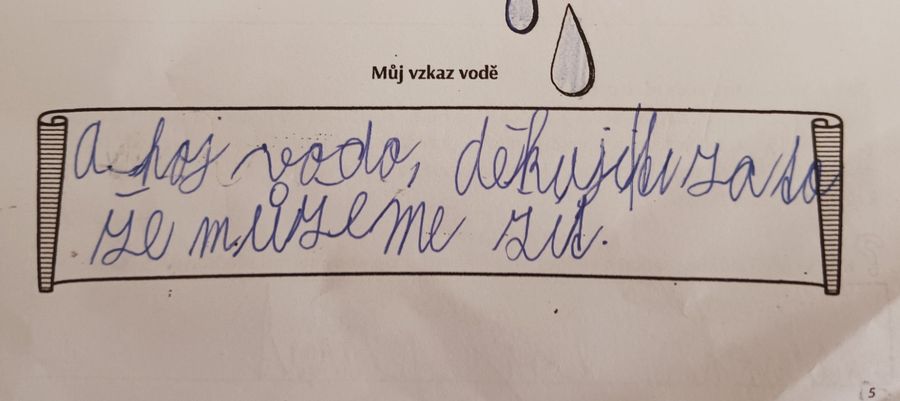 Můj vzkaz vodě
Ahoj vodo, děkuji ti za to
ze můzeme zit.
5